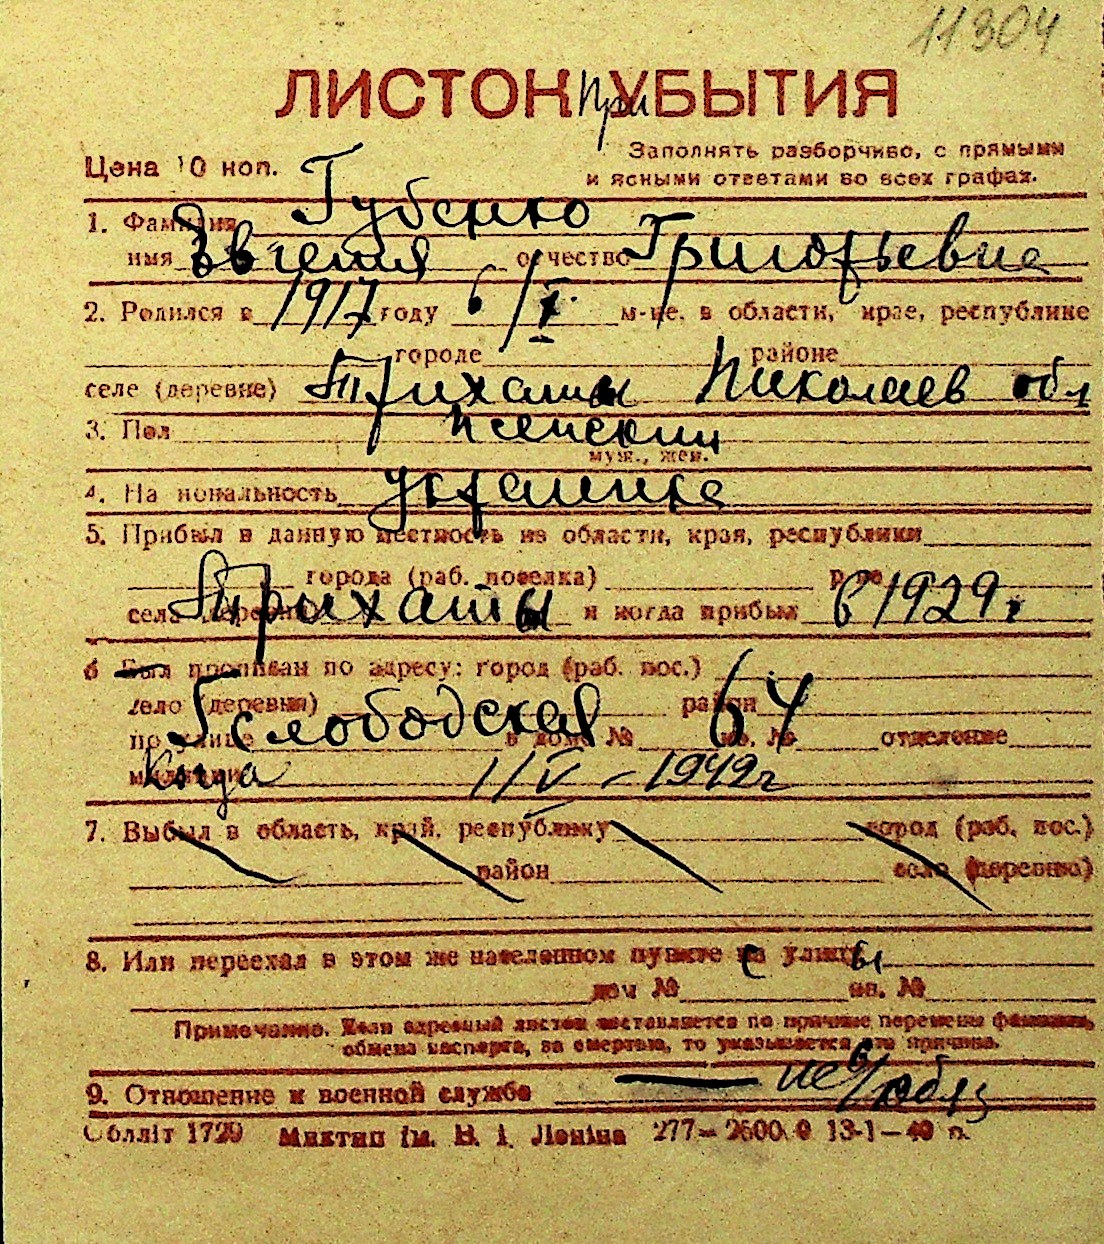 11304
ЛИСТОК При УБЫТИЯ
Цена 10 коп.
Заполнять разборчиво, с прямыми
и ясными ответами во всех графах.
1. Фамилия Губенко
имя Эвгения отчество Григорьевна
2. Родился в 1917 году 6/X м-це, в области, крае, республике
городе районе
селе (деревне) Трихаты Николаев обл
3. Пол женский
муж., жен.
4. На иональность украинка
5. Прибыл в данную местность из области, края, республики
города (раб. поселка) р-на
села (деревни) Трихаты и когда прибыл в 1929 г
6 Был прописан по адресу: город (раб. пос.)
село (деревня) район
по улице Слободская в доме № 64 кв. № отделение
милиции Когда 1/V – 1942 г
7. Выбыл в область, край, республику город (раб. пос.)
район село (деревню)
8. Или переехал в этом же населенном пункте с улицы
дом № кв. №
Примечание. Если адресный листок составляется по причине перемены фамилии,
обмена паспорта, за смертью, то указывается эта причина.
9. Отношение к военной службе — не в/обяз
Обллiт 1729 Миктип iм. В. I. Ленiна 277–2600.0 13-1–40 п.